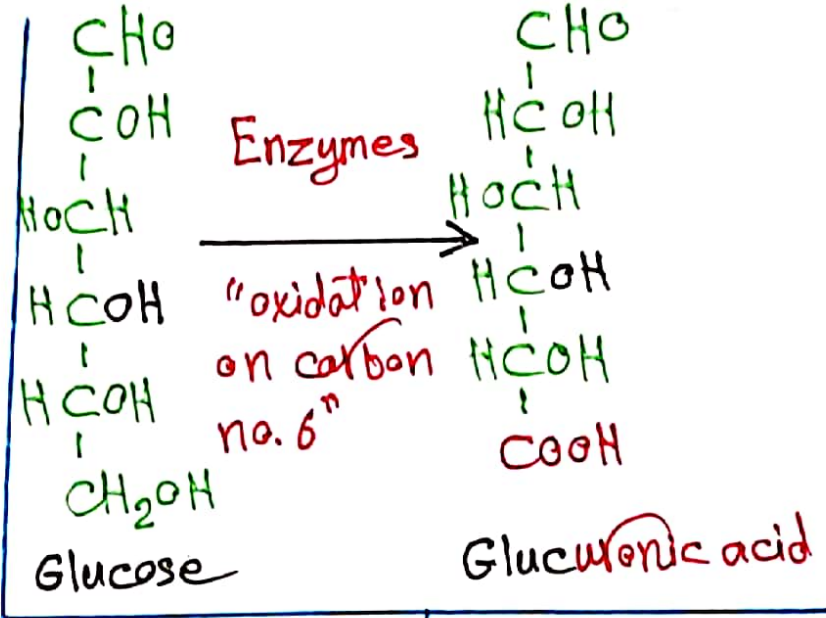 CHO
COH
HOCH
HCOH
HCOH
CH2OH
Glucose
Enzymes
"oxidation
on carbon
no. 6"
CHO
HCOH
HOCH
HCOH
HCOH
COOH
Glucuronic acid